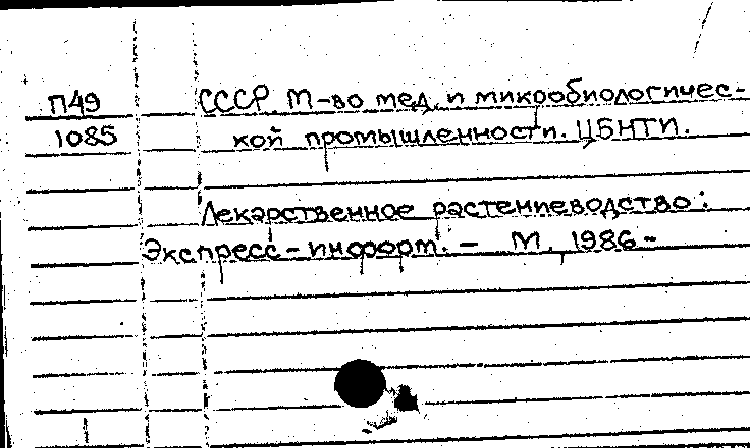 П49 СССР. М-во мед. и микробиологичес-
1085 кой промышленности. ЦБНТИ.
Лекарственное растениеводство:
Экспресс-информ. - М., 1986-